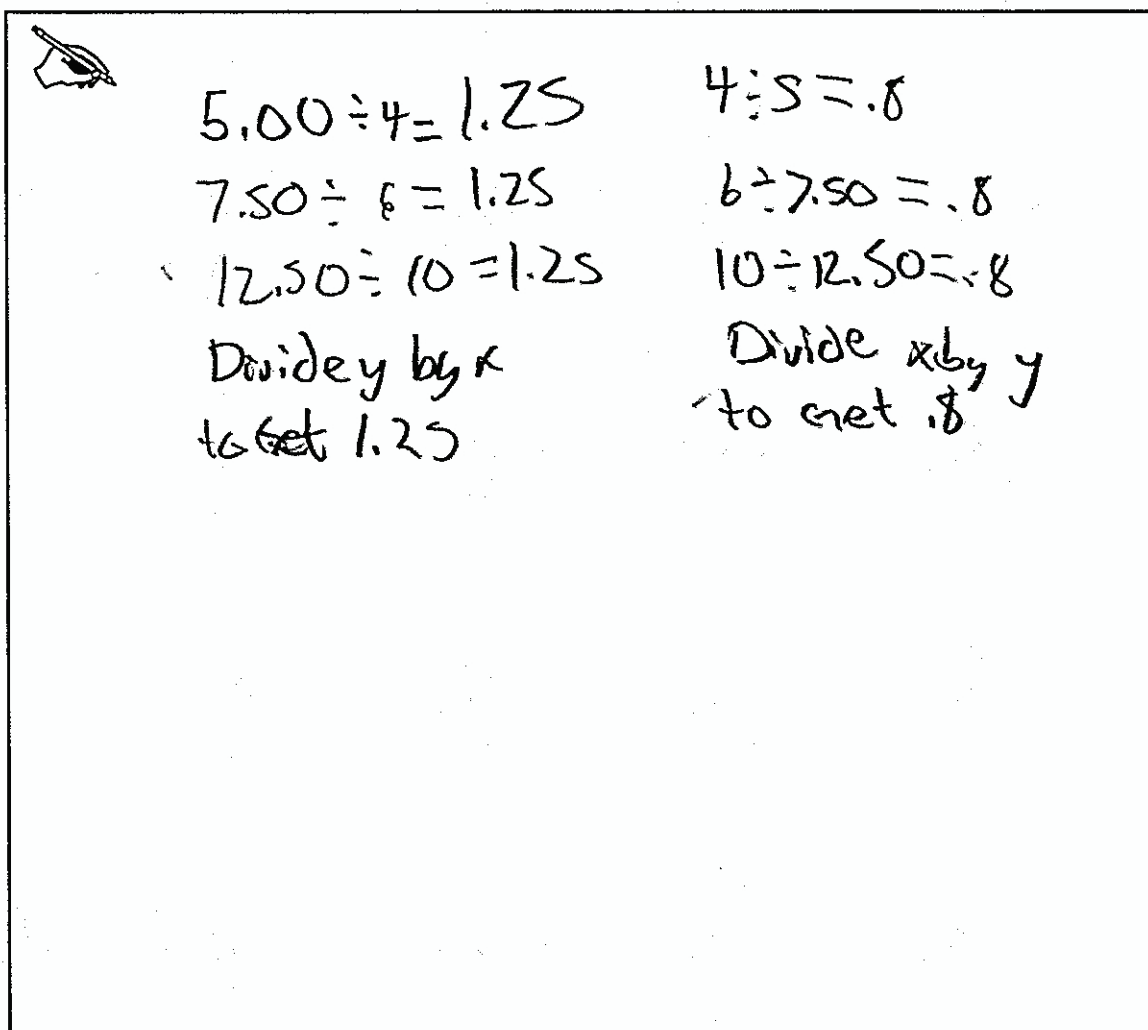 5.00 ÷ 4 = 1.25
7.50 ÷ 6 = 1.25
12.50 ÷ 10 = 1.25
Divide y by x
to Get 1.25
4 ÷ 5 = .8
6 ÷ 7.50 = .8
10 ÷ 12.50 = .8
Divide x by y
to Get .8